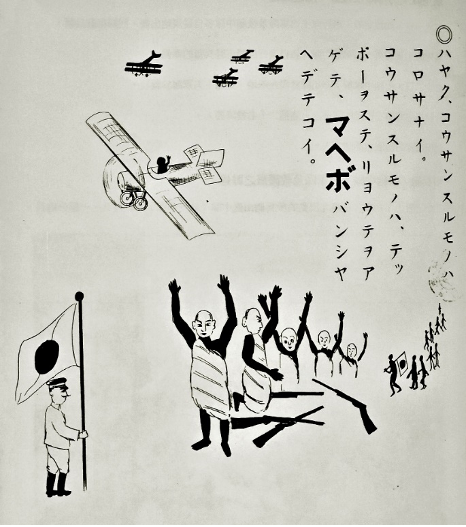 ◎ハヤク、コウサンスルモノハ
コロサナイ。
コウサンスルモノハ、テッ
ポーヲステ、リョウテヲア
ゲテ、マヘボバンシヤ
ヘデテコイ。